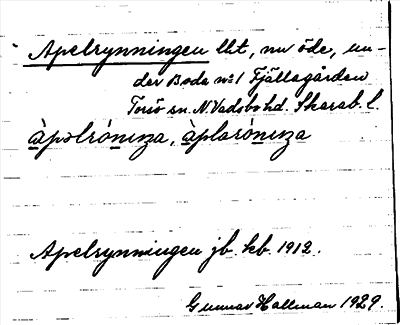 Apelrynningen lht, nu öde, un-
der Boda no 1 Fjällagården
Torsö sn. N. Vadsbo hd. Skarab. l.
àpəlróninza, àplaróninza
Apelrynningen jb. kb. 1912.
Gunnar Hallman 1929.